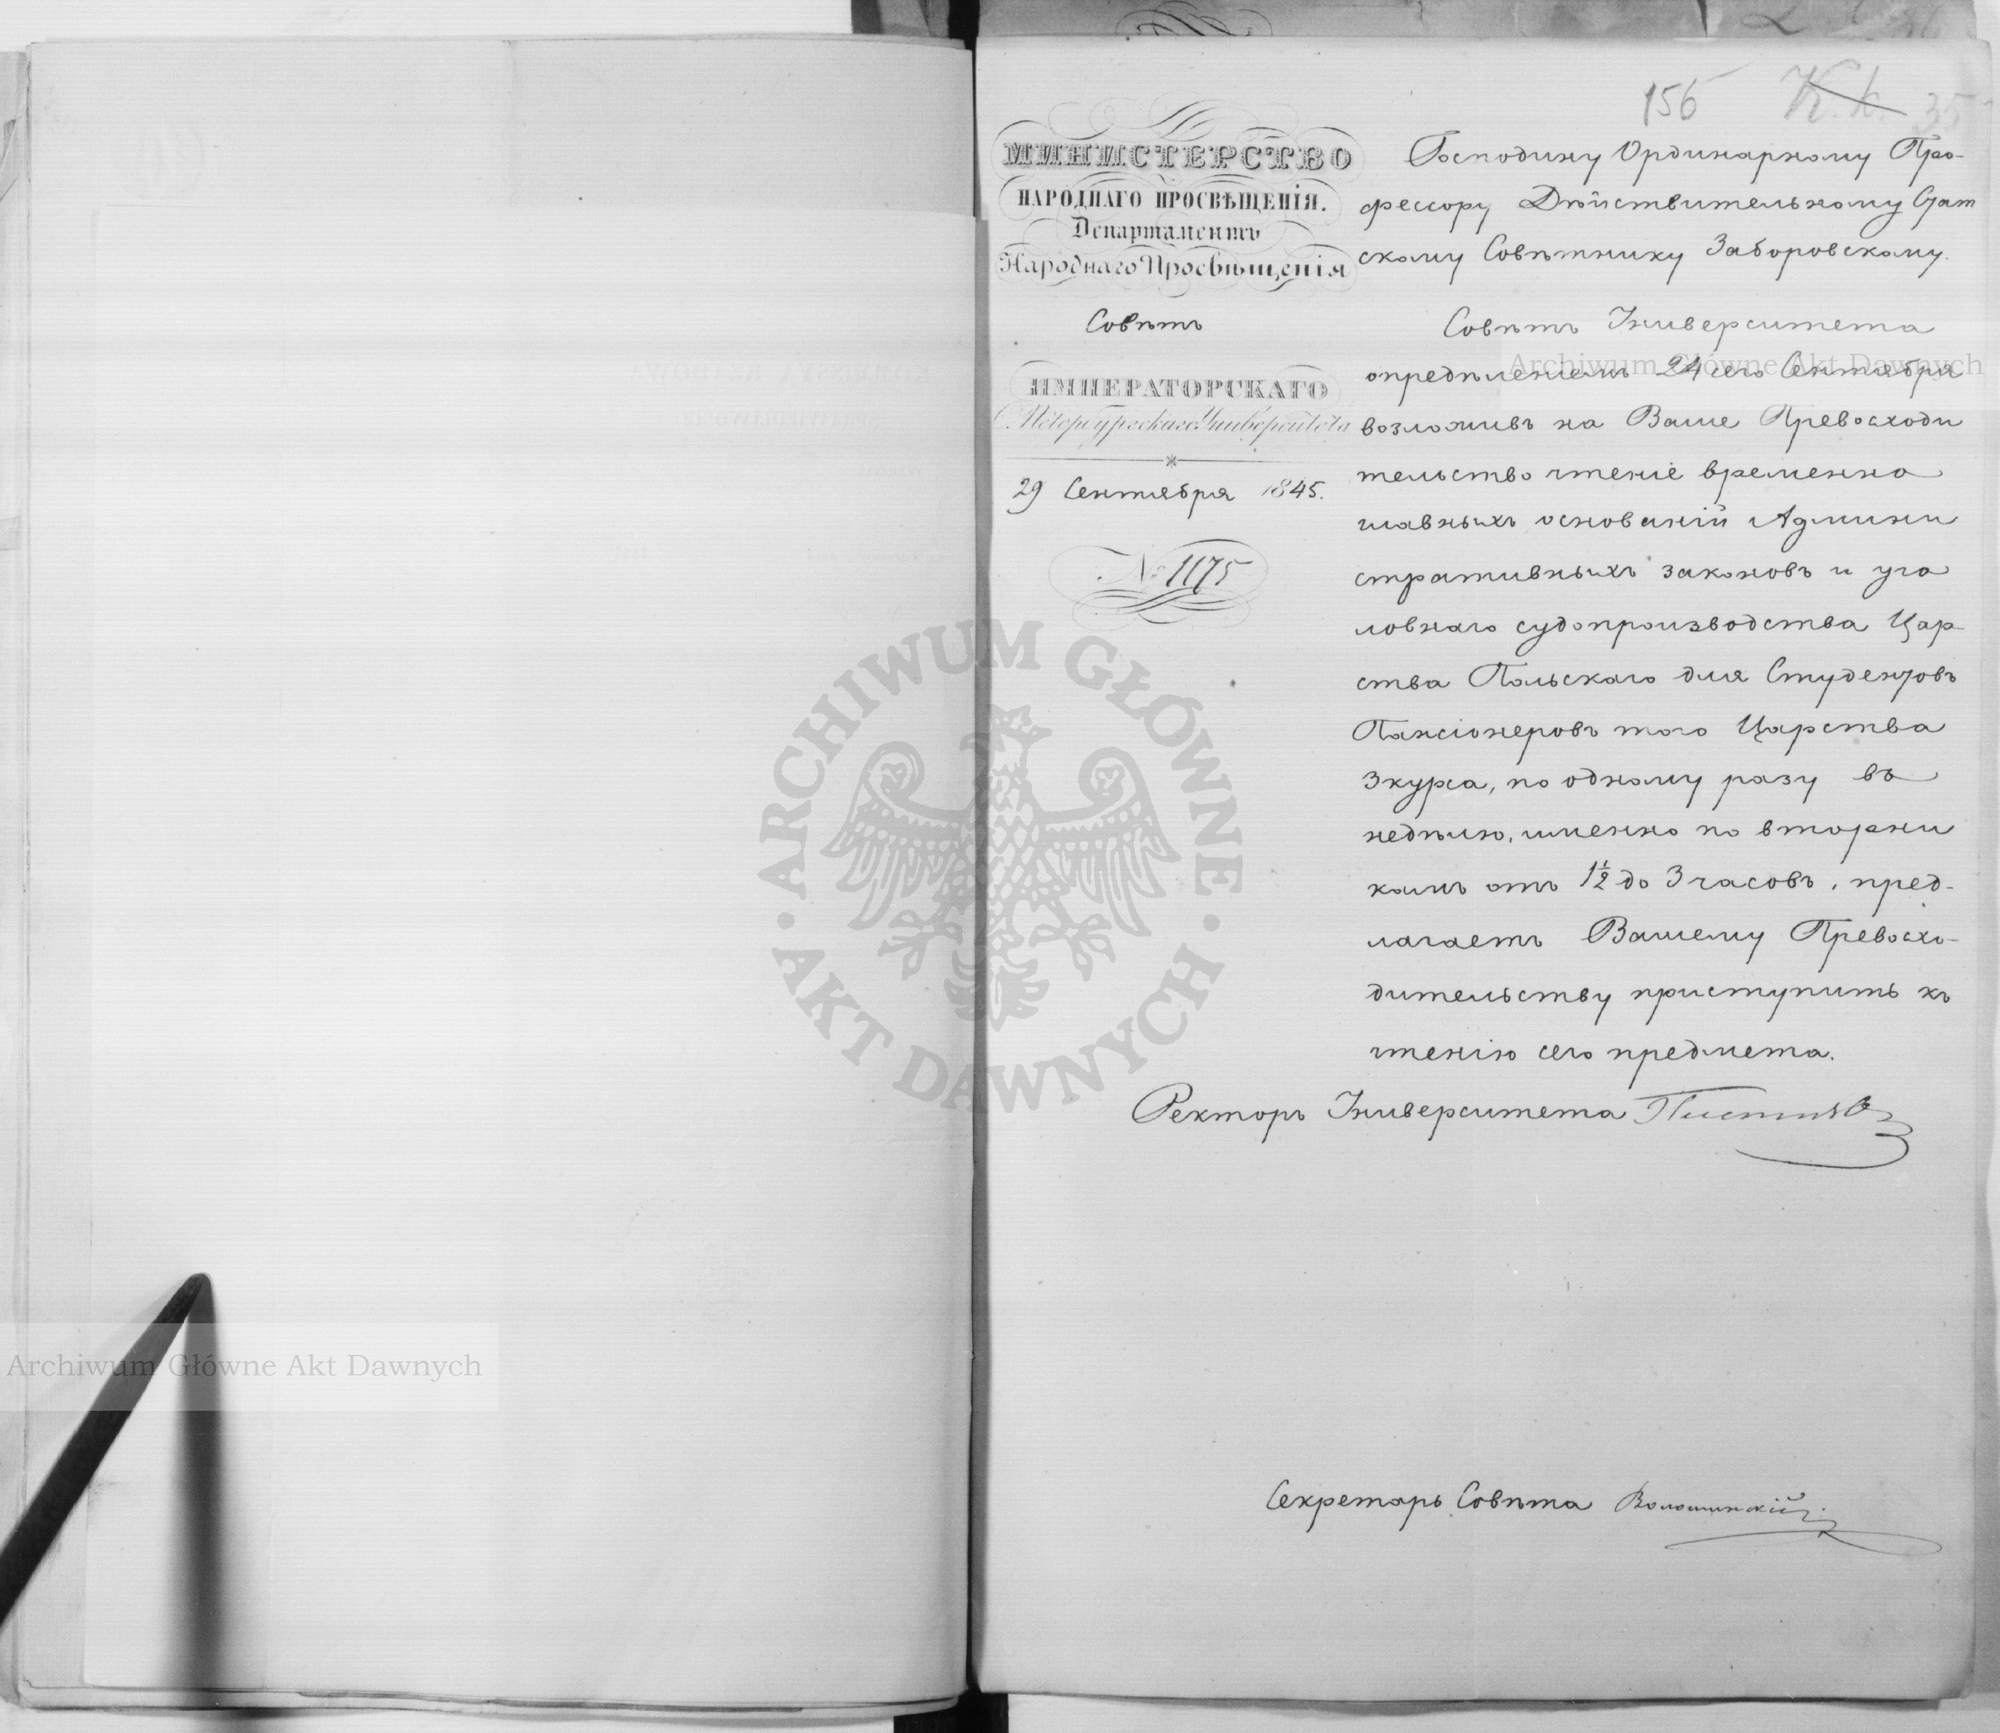 156 К. к. 35
МИНИСТЕРСТВО
НАРОДНАГО ПРОСВѢЩЕНІЯ.
Департаментъ
Народнаго Просвѣщенія
Совѣтъ
ИМПЕРАТОРСКАГО
С. Петербургскаго Университета
29 Сентября 1845.
№ 1175
Господину Ординарному Про-
фессору Дѣйствительному Стат
скому Совѣтнику Заборовскому.
Совѣтъ Университета
опредѣленіемъ 24 сего Сентября
возложивъ на Ваше Превосходи
тельство чтеніе временно
главныхъ основаній Админи
стративныхъ законовъ и уго
ловнаго судопроизводства Цар
ства Польскаго для Студентовъ
Пансіонеровъ того Царства
3 курса, по одному разу въ
недѣлю, именно по вторни
камъ отъ 1½ до 3 часовъ, пред-
лагаетъ Вашему Превосхо-
дительству приступить къ
чтенію сего предмета.
Ректоръ Университета
Секретарь Совѣта Волошинскій
Archiwum Główne Akt Dawnych
Archiwum Główne Akt Dawnych
ARCHIWUM GŁÓWNE AKT DAWNYCH